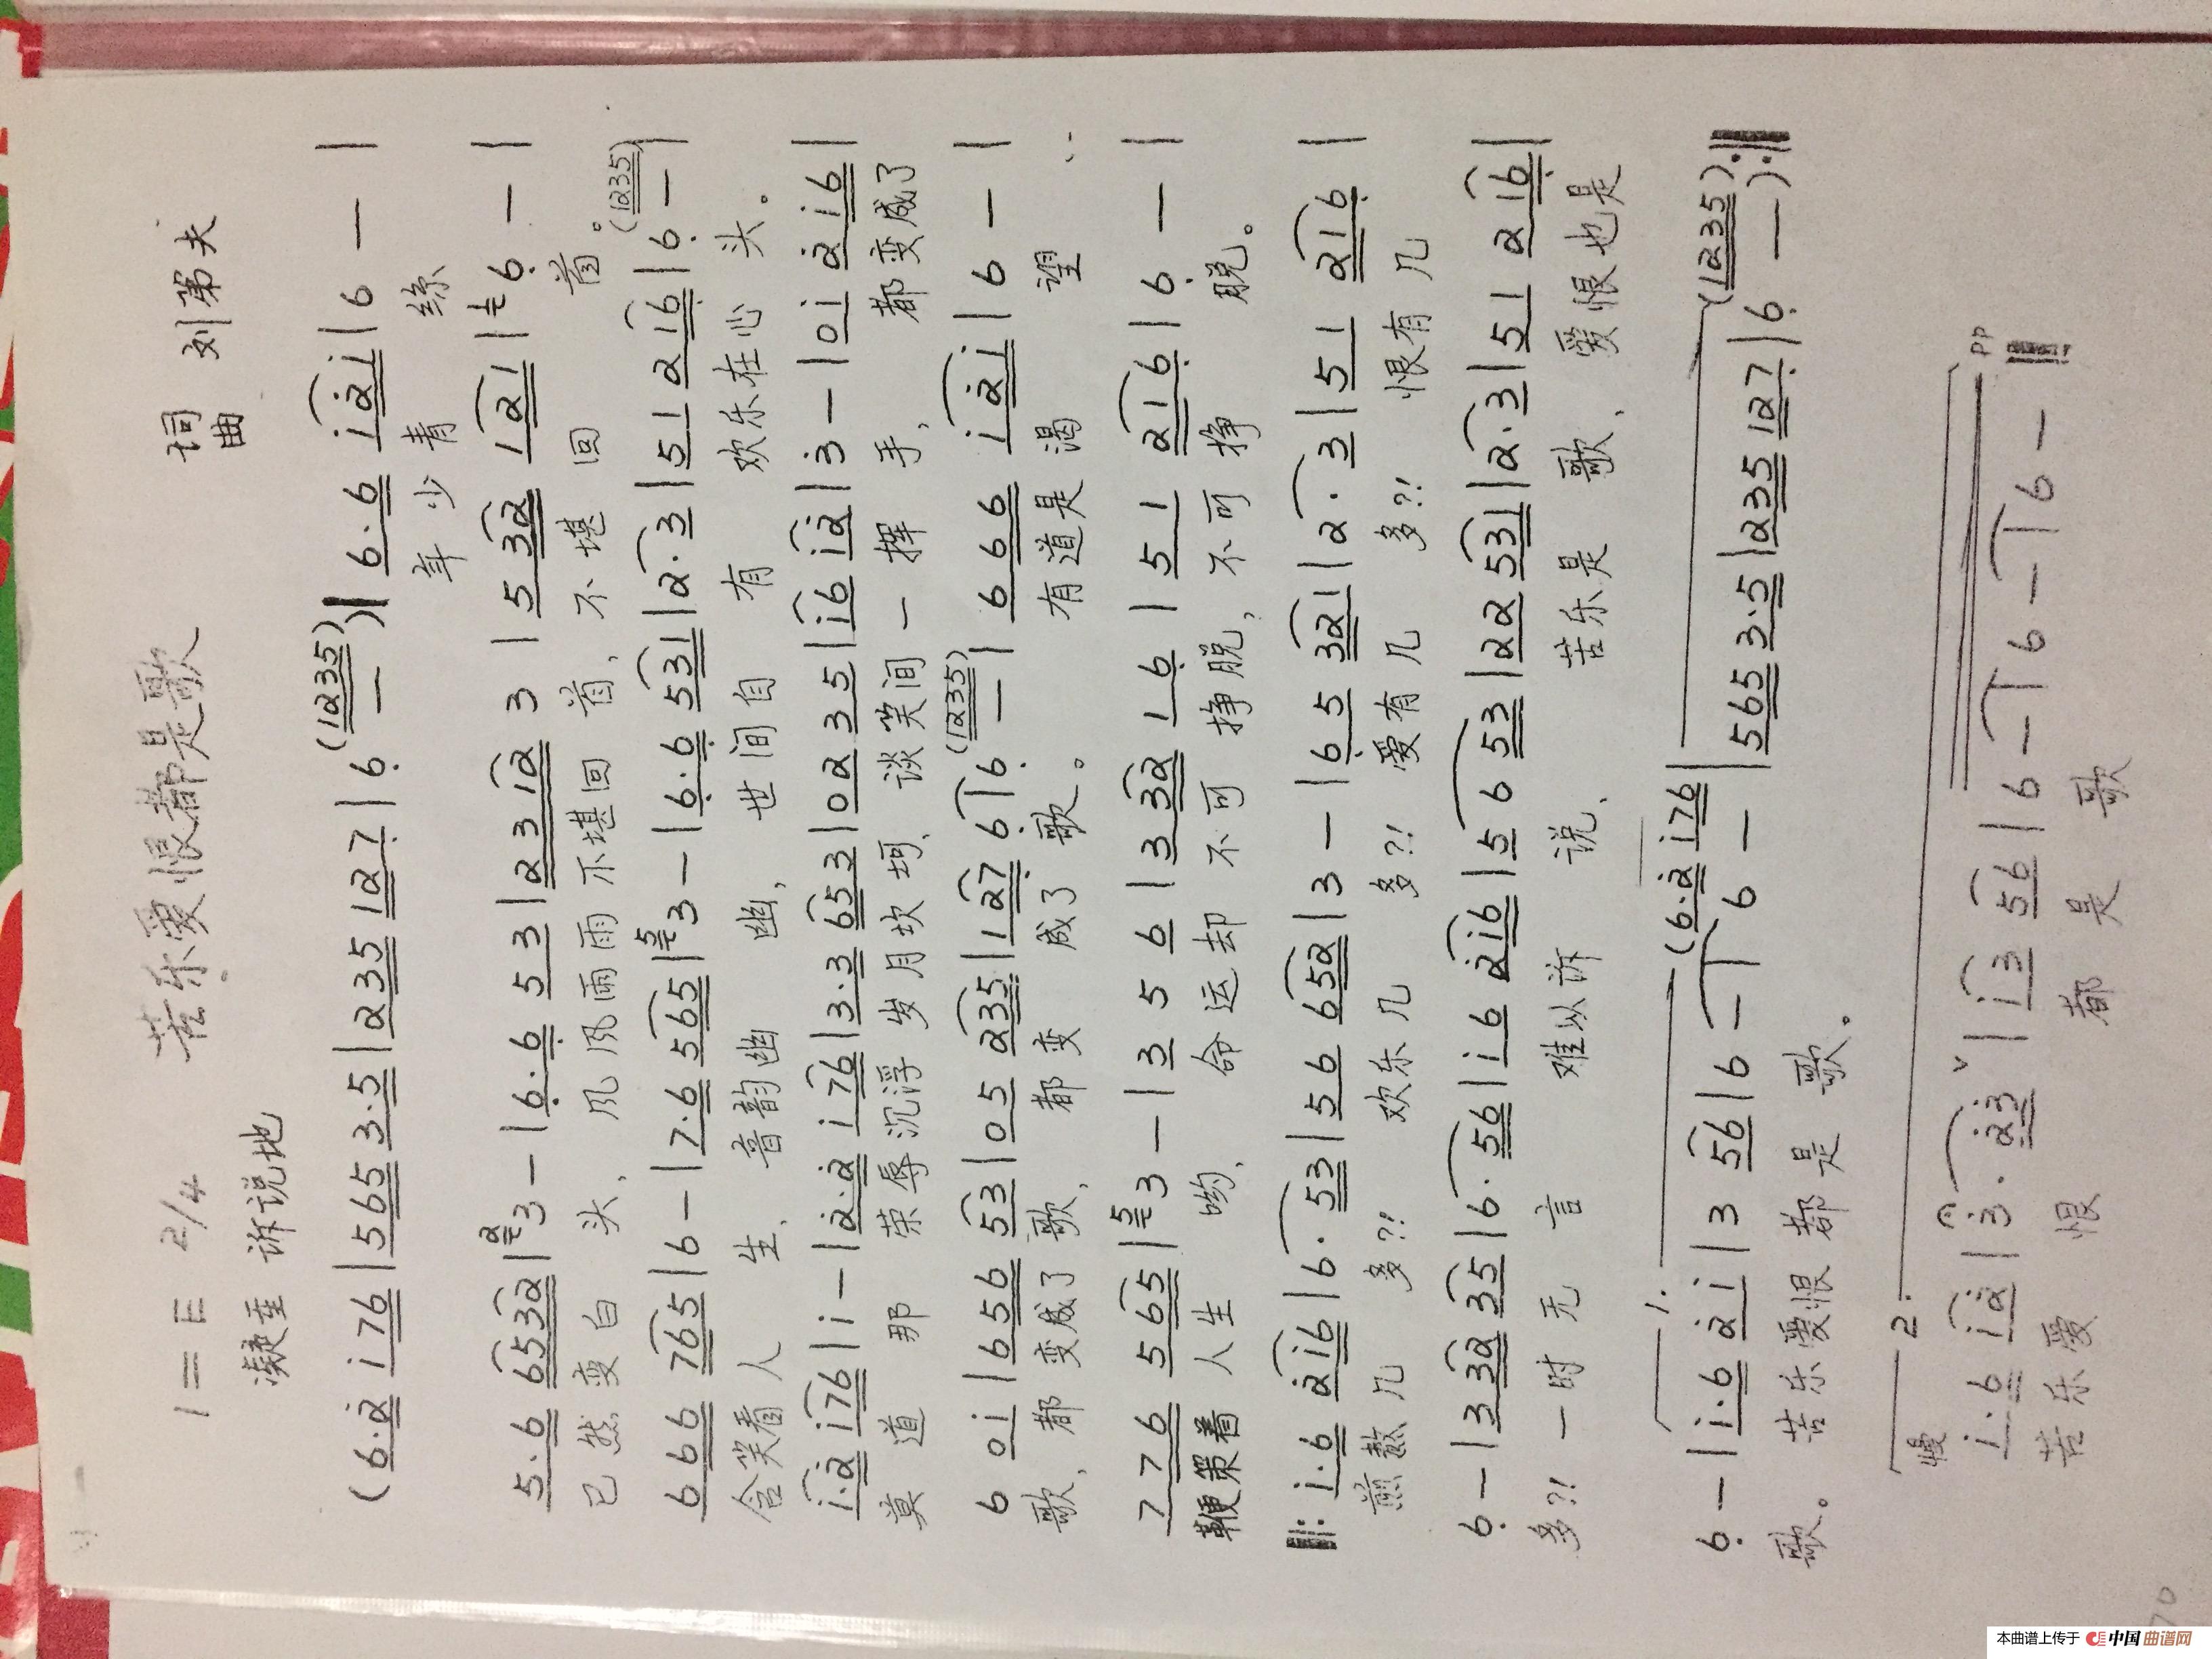 苦乐爱恨都是歌
1=E 2/4
词
曲 刘第夫
凝重 诉说地
(6·2 i 76 | 565 3·5 | 235 127 | 6 (1235) — )‖ 6·6 i2i | 6 — |
年少青 丝
5·6 6532 | 3 — | 6·6 53 | 23 12 3 | 5 32 121 | 6 — |
已然变白 头、 风风雨雨不堪回 首, 不堪 回 首。
666 765 | 6 — | 7·6 565 | 3 — | 6·6 531 | 2·3 | 51 216 | 6 (1235) — |
含笑看人 生、 音韵幽 幽, 世间自 有 欢乐在心 头。
i·2 i76 | i — | 2·2 i 76 | 3·3 653 | 02 35 | i6 i2 | 3 — | 0i 2i6 |
莫 道 那 荣辱沉浮 岁月坎坷、 谈笑间 一 挥 手, 都变成了
6 0i | 656 53 | 05 235 | 127 6 | 6 (1235) — | 666 i2i | 6 — |
歌、 都变成了 歌、 都变 成了 歌。 有道是 渴 望
776 565 | 3 — | 3 5 6 | 3 32 16 | 51 216 | 6 — |
鞭策着人生 哟、 命运却 不可 挣脱, 不可 挣 脱。
‖: i·6 2i6 | 6·53 | 56 652 | 3 — | 65 321 | 2·3 | 51 216 |
煎熬几 多?! 欢乐几 多?! 爱有几 多?! 恨有 几
6 — | 3 32 35 | 6·56 | i6 2i6 | 56 53 | 22 531 | 2·3 | 51 216 |
多?! 一时 无 言 难以诉 说、 苦乐是 歌、 爱恨也是
1.
6 — | i·6 2i | 3 56 | 6 — | 6 (6·2 i76 — | 565 3·5 | 235 127 | 6 (1235) — ) :‖
歌。 苦乐爱恨都是 歌。
2.
慢
i·6 i2 | 3·23 ∨ | i3 56 | 6 — | 6 — | 6 — ‖
pp
苦乐爱 恨 都 是 歌
70
本曲谱上传于 中国曲谱网